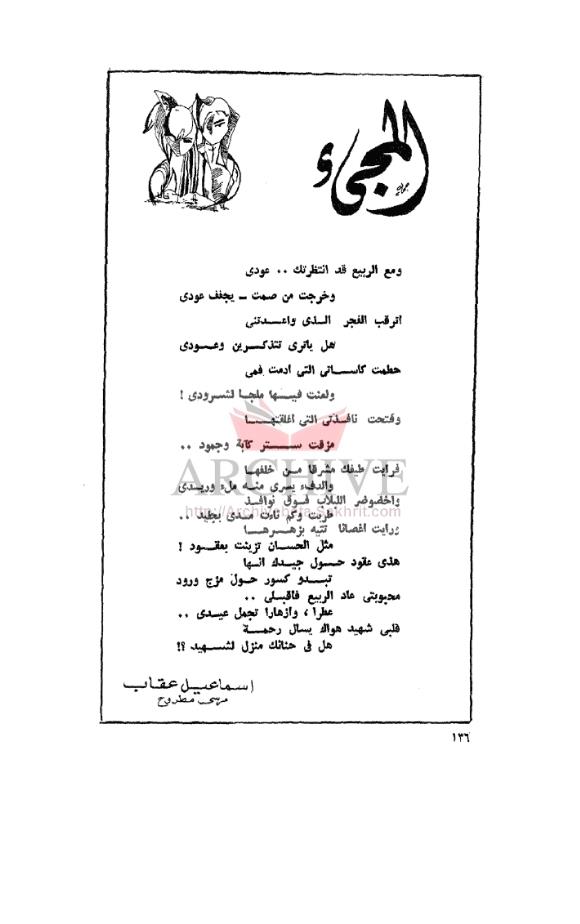 المجيء
ومع الربيع قد انتظرتك .. عودى
وخرجت من صمت ــ يجفف عودى
اترقب الفجر الـذى واعـدتنى
هل ياترى تتذكـرين وعـودى
حطمت كاسـاتى التى ادمت فمى
ولعنت فيـها ملجا لشرودى !
وفتحت نافـذتى التى اغلقتهـا
مزقت ستـر كابة وجمود ..
فرايت طيفك مشرقا مـن خلفهـا
والدفء يسرى منـه ملء وريـدى
واخضوضر اللبلاب فـوق نوافـذ
طربت وكم ناءت مـدى بجليد ..
ورايت اغصانا تتيه بزهـرهـا
مثل الحسان تزينت بعقـود !
هذى عقود حـول جيـدك انـها
تبـدو كسور حـول مرج ورود
محبوبتى عاد الربيع فاقبلـى ..
عطرا ، وازهارا تجمل عيـدى ..
قلبى شهيد هواك يسال رحمـة
هل فى حنانك منزل لشهيد ؟!
اسماعيل عقاب
مرسى مطروح
١٣٦
ARCHIVE
http://Archivebeta.Sakhrit.com